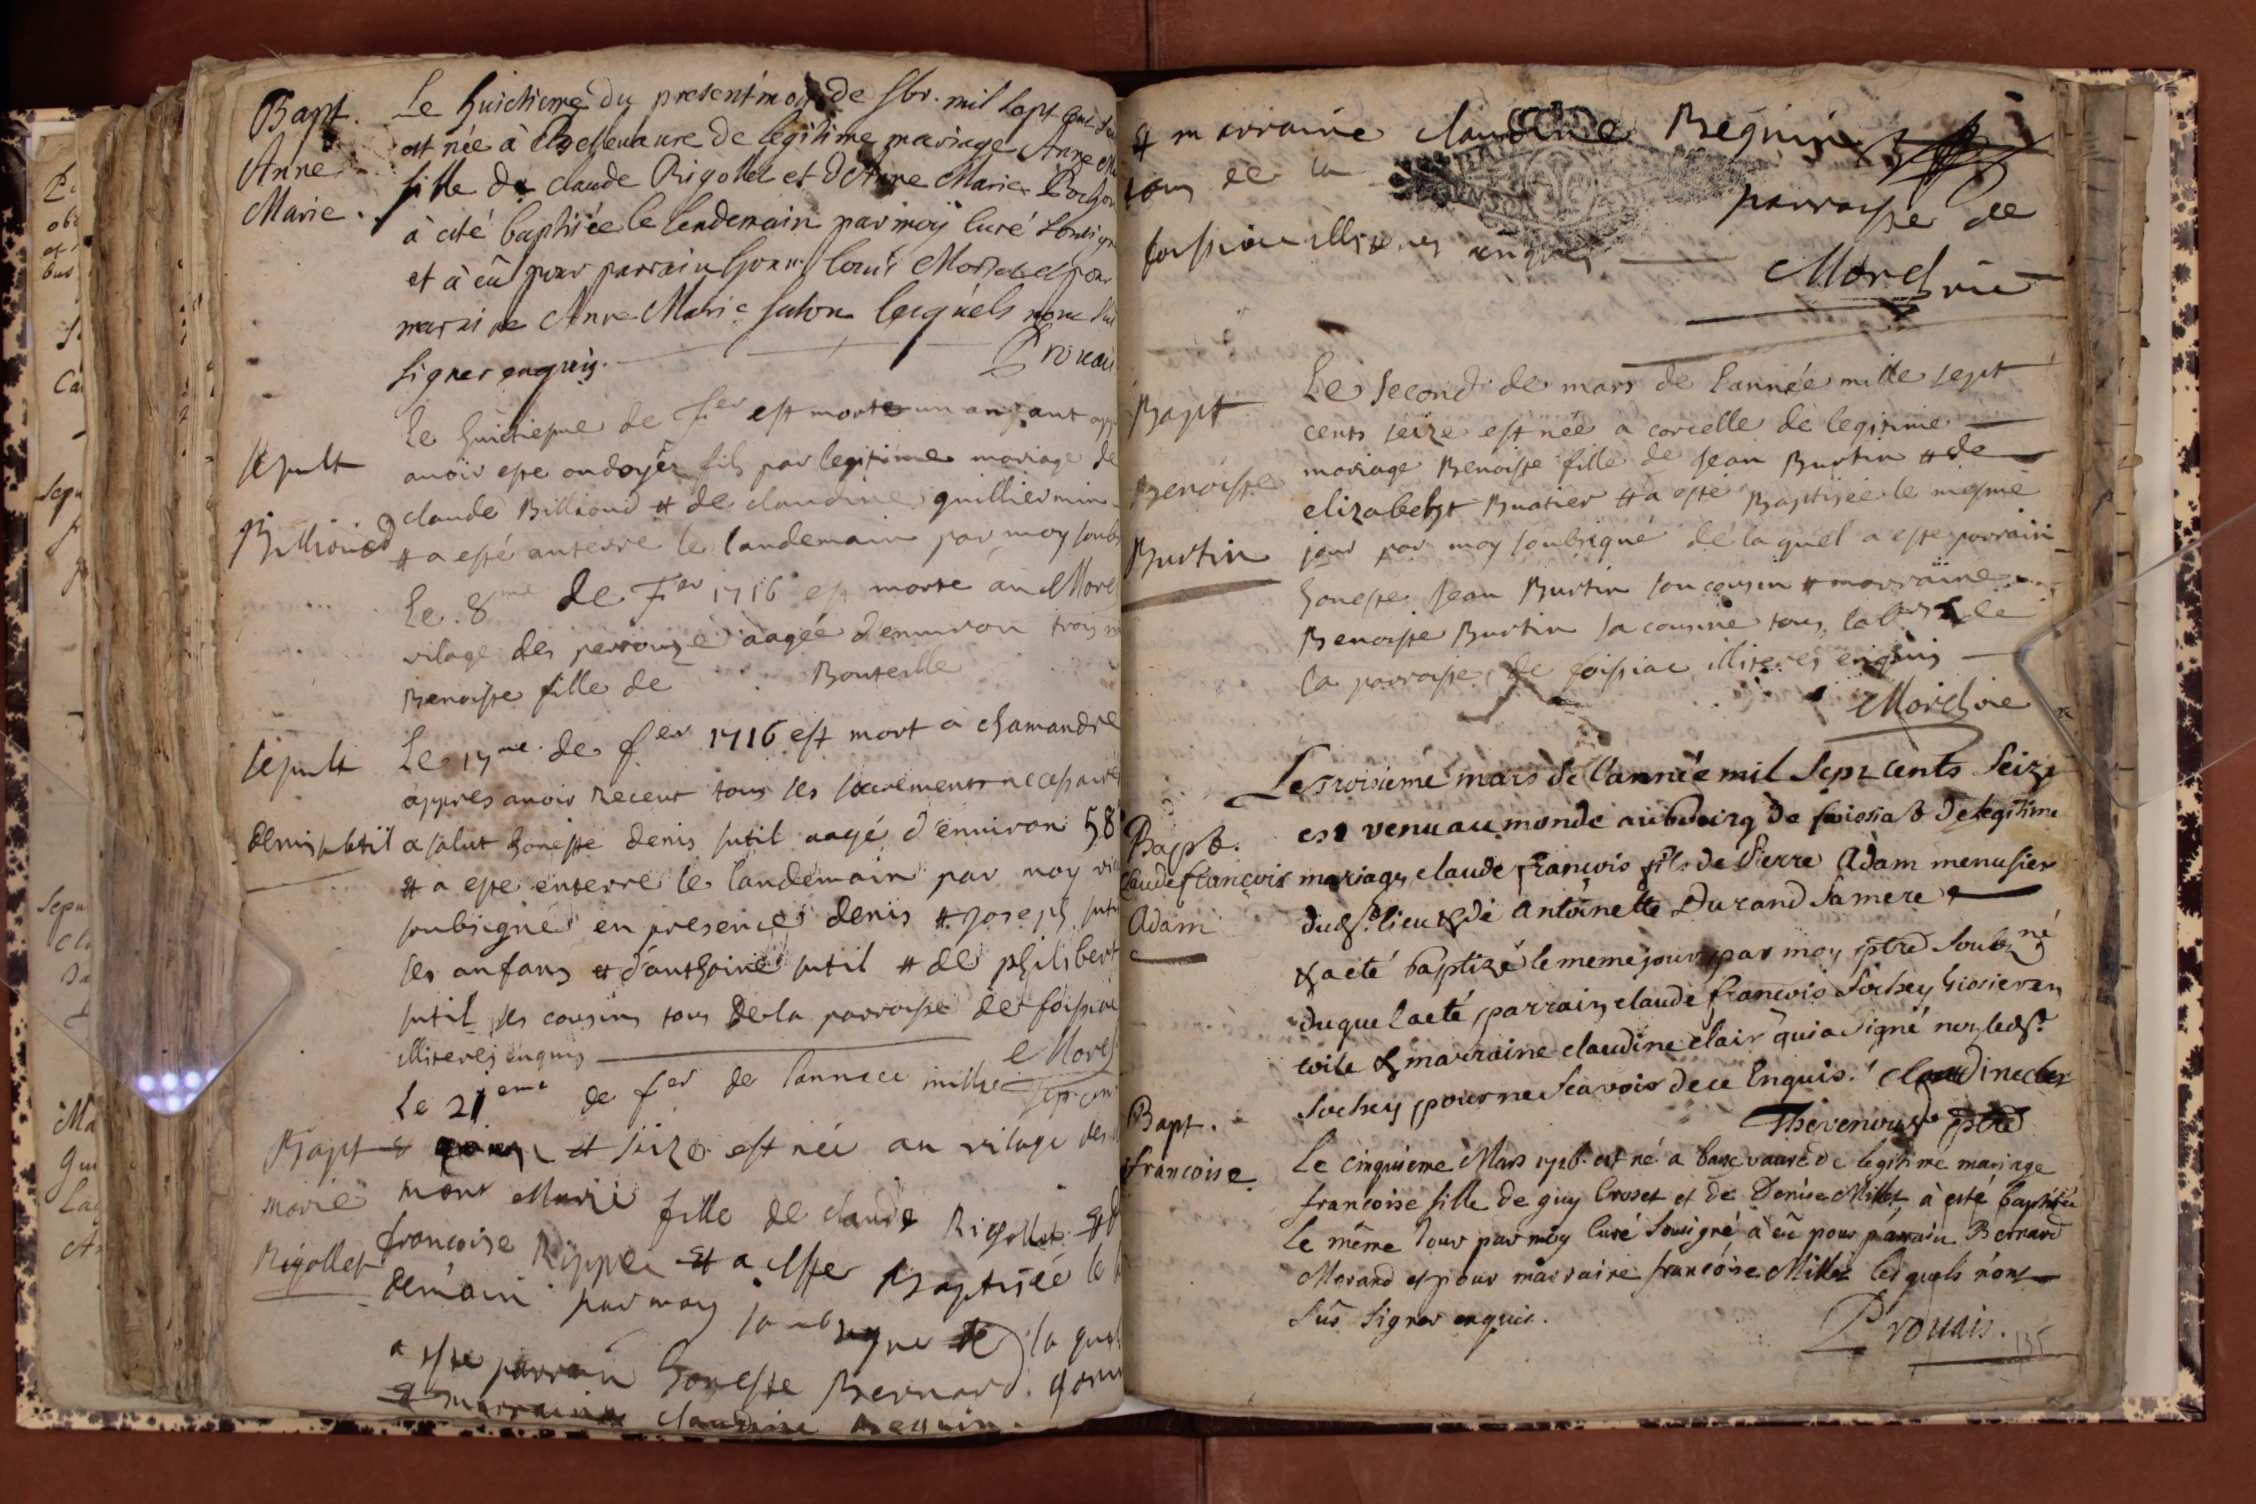 Bapt.
Anne
Marie.
Le huictieme du present mois de fbr. mil sept cent
est née à de legitime mariage Anne
fille de claude Rigollet et d'Anne Marie Pochon
à eté baptisée le lendemain par moÿ curé
et à eû pour parrain Louïs et pour
marraine Anne Marie lesquels nont
signer enquis.
sepult
Billioud
Le huictiesme de fer est morte un anfant
avoir este ondoyer fils par legitime mariage de
claude Billioud et de claudine guilliermin
et a esté anterré le landemain par moy
Le 8me de fer 1716 est morte au
vilage des aagée d'environ trois
Benoiste fille de Bouteille
sepult
denis sutil
Le 17me de fer 1716 est mort a chamandre
appres avoir receut tous ses sacrements necessaires
a salut honeste denis sutil aagé d'environ 58
et a este enterré le landemain par moy
soubsigné en presence denis et joseph
ses anfans et d'anthoine sutil et de philibert
sutil ses cousins tous de la parroisse de foissiac
illiteres enquis Morel
Le 21eme de fer de l'annee mille sept cents
Bapt
marie
Rigollet
et seize est née au vilage des
mont Marie fille de claude Rigollet et
francoise Rippe et a este Baptisée le
demain par moy soubsigné de la quel
a este parrain honeste Bernard
et marraine claudine Beguin
et marraine claudine Beguin
tous de la parroisse de
foissiac illiteres enquis
Morel vic
Bapt
Benoiste
Burtin
Le second de mars de l'année mille sept
cents seize est née a corcelle de legitime
mariage Benoiste fille de Jean Burtin et de
elizabeht Buatier et a esté Baptisée le mesme
jour par moy soubsigné de la quel a este parrain
honeste Jean Burtin son cousin et marraine
Benoiste Burtin sa cousine tous de
la parroisse de foissiac illiteres enquis
Morel vic
Bapt.
Claude françois
Adam
Le troisieme mars de l'année mil sept cents seize
est venu au monde au bourg de foissiat de legitime
mariage claude françois fils de Pierre Adam menusier
dudt. lieu & de Antoinette Durand sa mere
& a eté baptizé le meme jour par moy ptre soubzné
du quel a eté parrain claude françois Sochey
& marraine claudine clair qui a signé non ledt.
Sochey pour ne scavoir de ce Enquis. claudine cler
Thevenoud ptre
Bapt.
francoise
Le cinquieme Mars 1716. est né a de legitime mariage
francoise fille de guy Croset et de Denise Millet à esté baptisée
le même Jour par moy curé sousigné à eû pour parrain Bernard
Morand et pour marraine francoise Millet lesquels nont
sus signer enquis.
Provais.
135